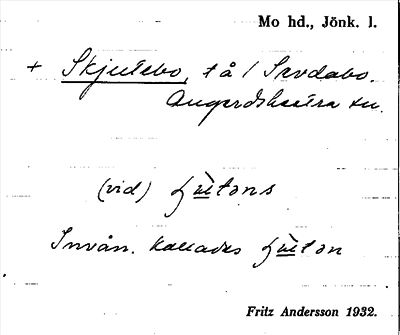 Mo hd., Jönk. l.
+ Skjutebo, t å / Sevdabo.
Angerdshestra sn.
(vid)
Invån. kallades
Fritz Andersson 1932.